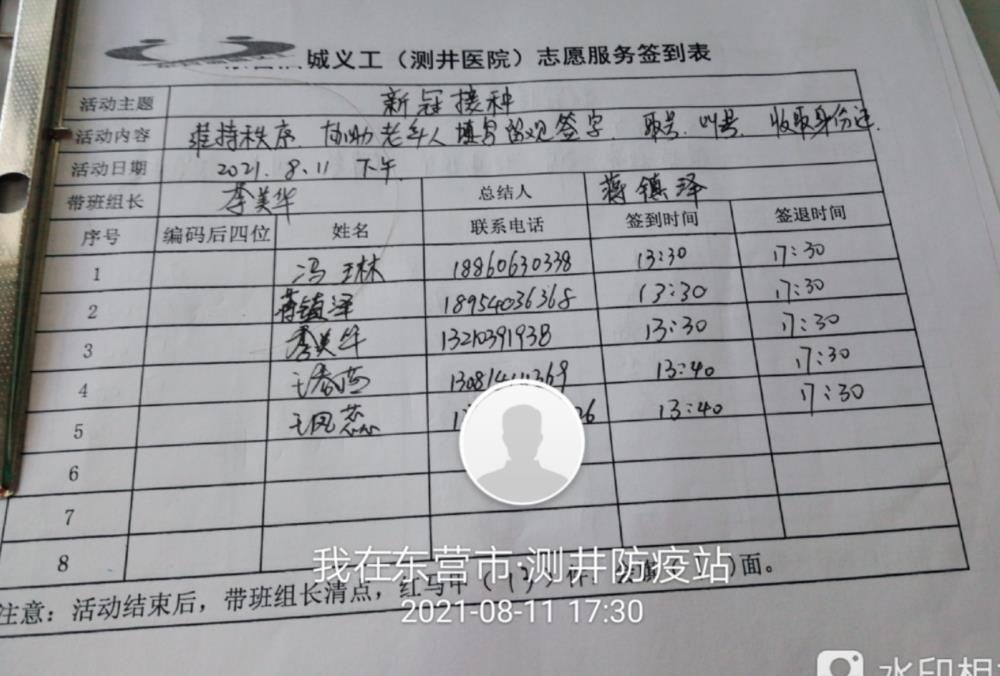 城义工（测井医院）志愿服务签到表
活动主题 新冠接种
活动内容 维持秩序、协助老年人填写留观签字、取号、叫号、收取身份证
活动日期 2021.8.11 下午
带班组长 李美华 总结人 蒋镇泽
序号 编码后四位 姓名 联系电话 签到时间 签退时间
1 冯玉林 18860630338 13:30 17:30
2 蒋镇泽 18954036368 13:30 17:30
3 李美华 13210391938 13:30 17:30
4 13:40 17:30
5 13:40 17:30
6
7
8
注意：活动结束后，带班组长清点，红马甲（13）件， ）面。
我在东营市·测井防疫站
2021-08-11 17:30
水印相